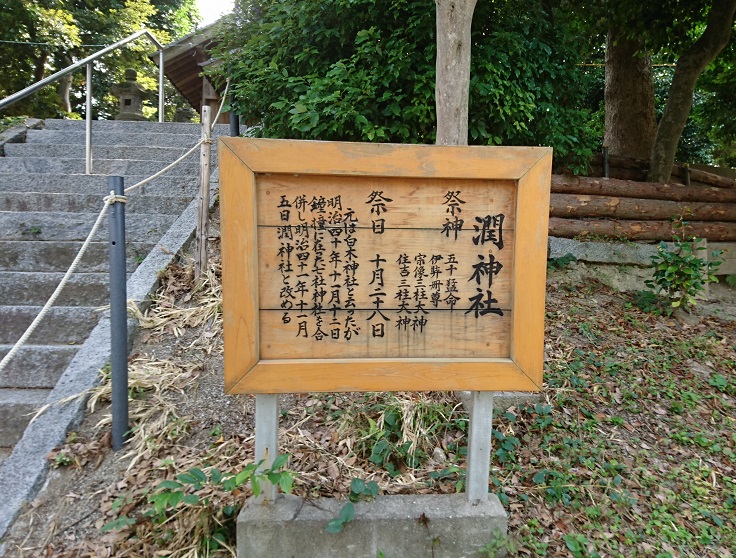 潤神社
祭神
五十猛命
伊弉冊尊
宗像三柱大神
住吉三柱大神
祭日 十月二十八日
元は白木神社と云ったが
明治四十年十一月十三日
鐘撞に在る七社神社を合
併し明治四十一年十一月
五日潤神社と改める